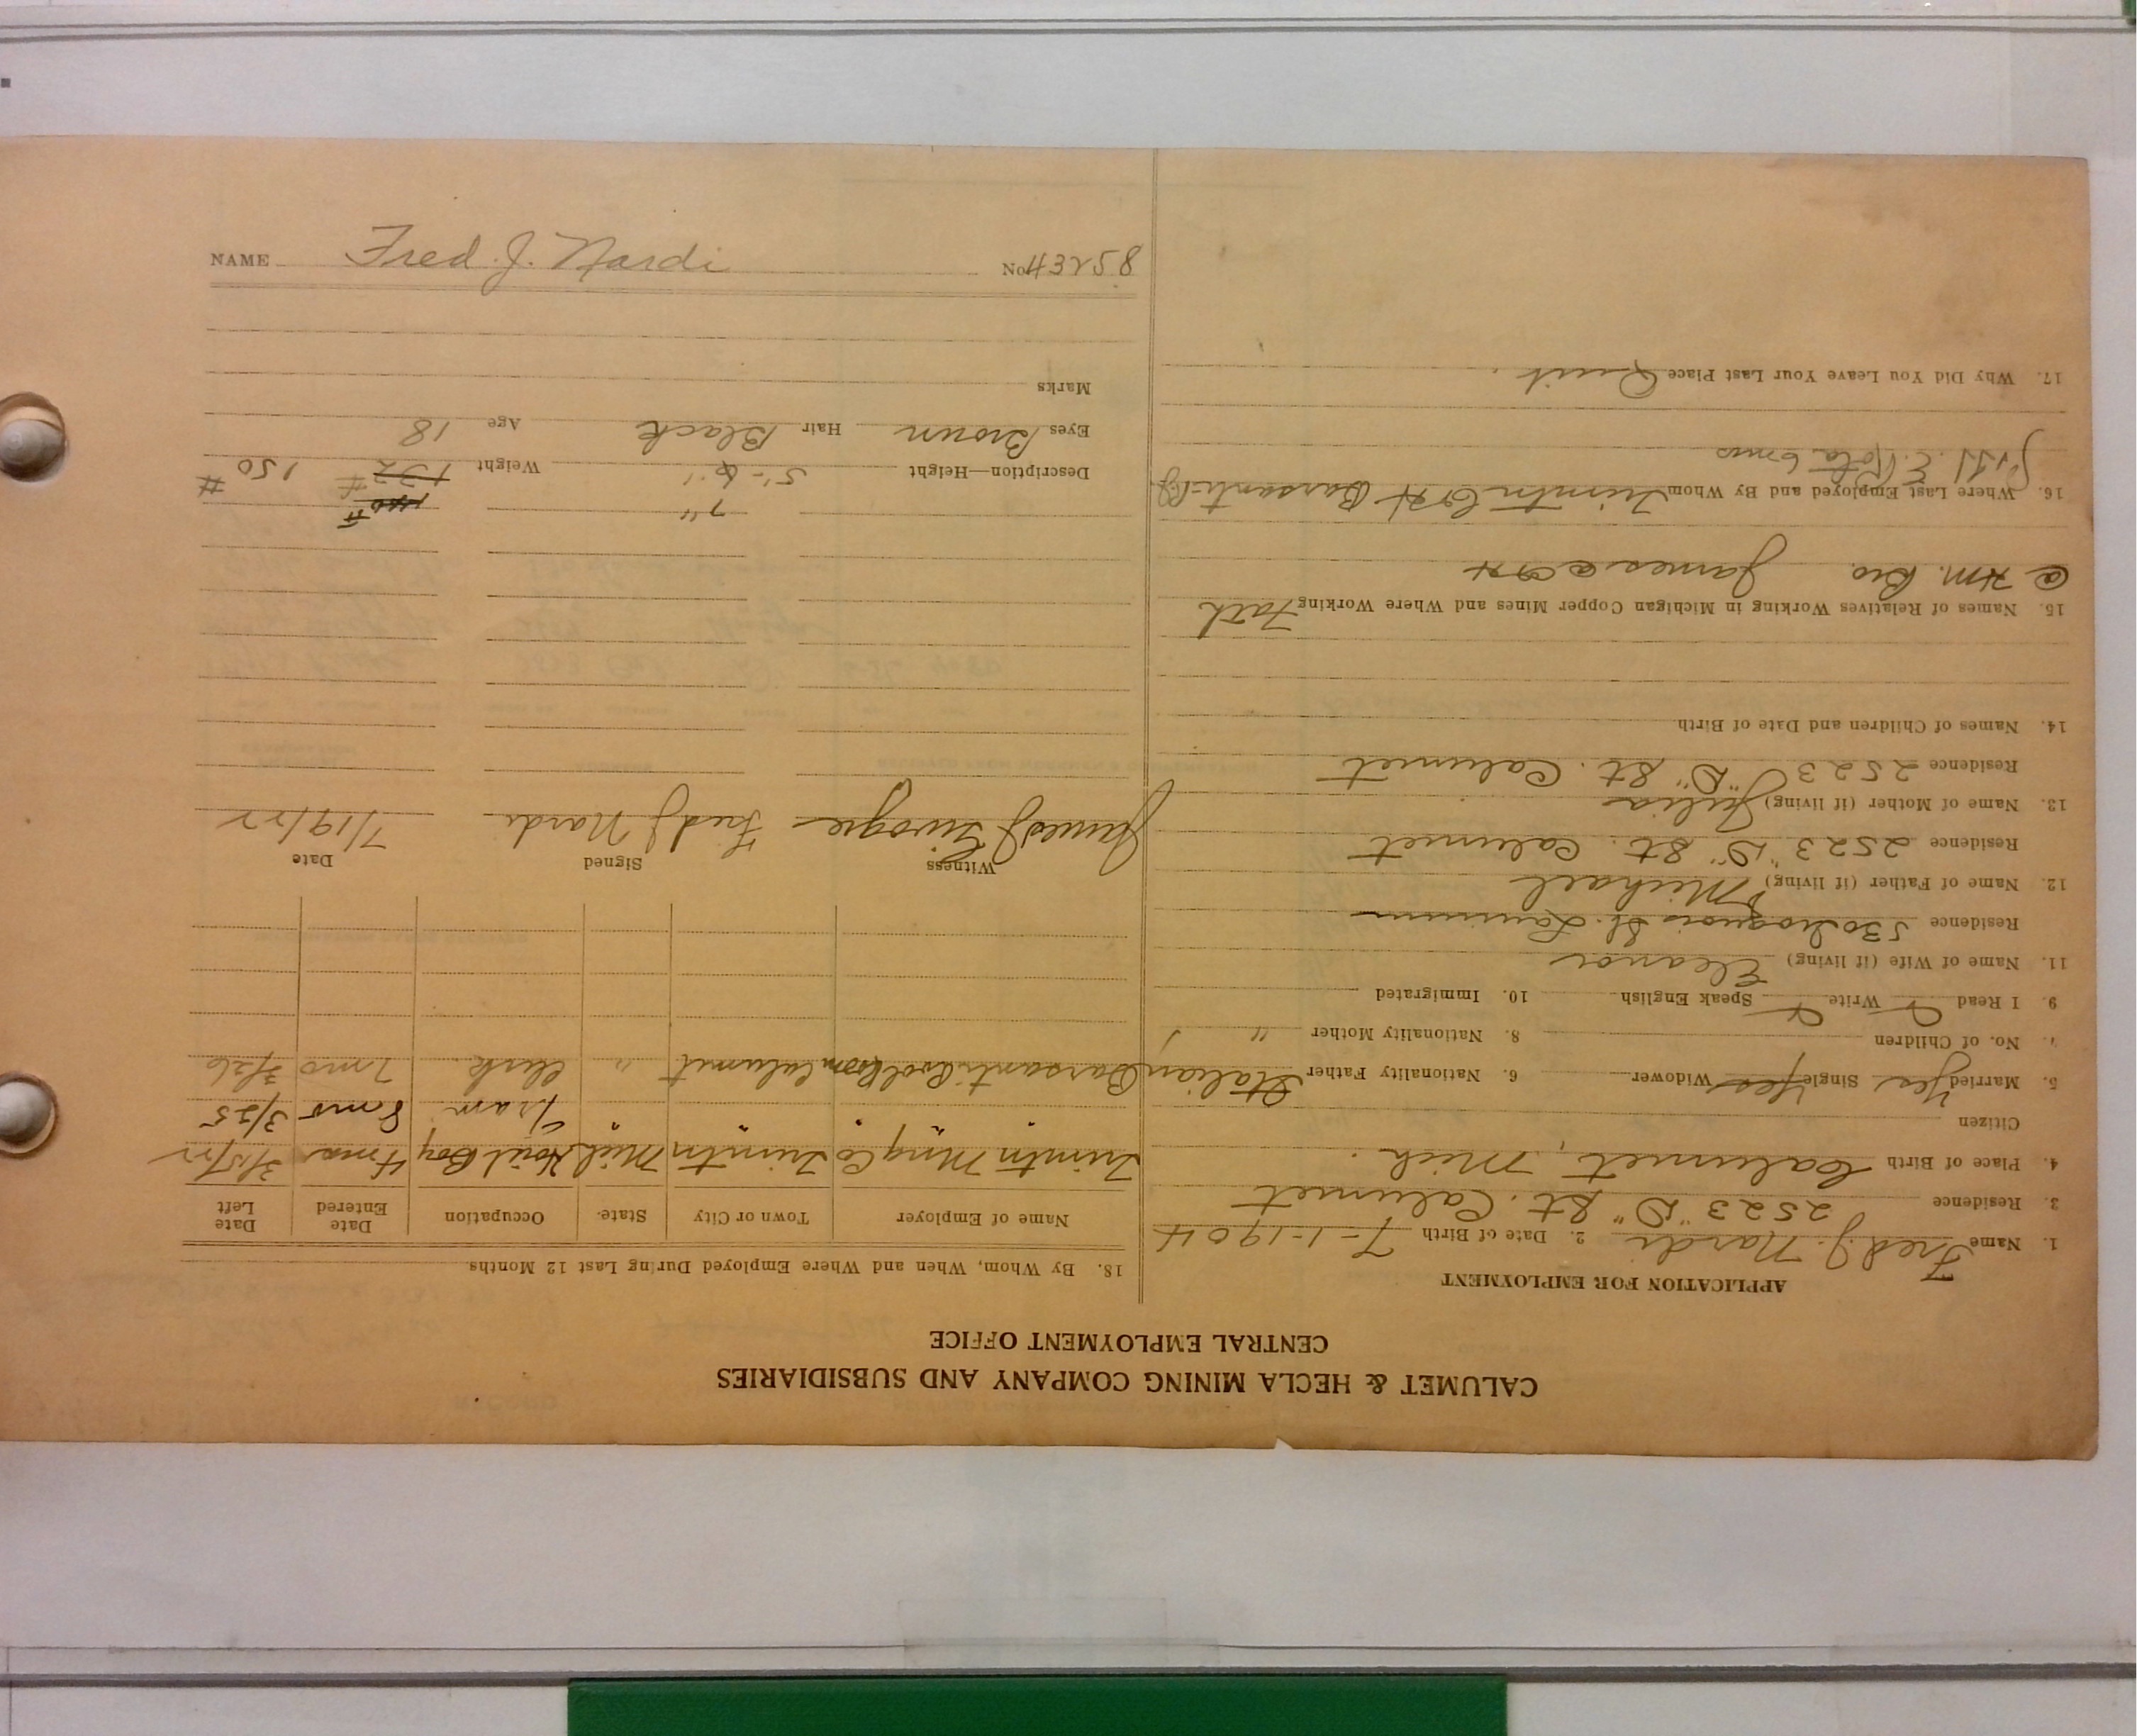 CALUMET & HECLA MINING COMPANY AND SUBSIDIARIES
CENTRAL EMPLOYMENT OFFICE
APPLICATION FOR EMPLOYMENT
1. Name Fred J. Nardi 2. Date of Birth 7-1-1904
3. Residence 2523 "D" St. Calumet
4. Place of Birth Calumet, Mich.
Citizen
5. Married Yes Single Yes Widower 6. Nationality Father Italian
7. No. of Children 8. Nationality Mother "
9. I Read Write Speak English 10. Immigrated
11. Name of Wife (if living) Eleanor
Residence 530 Iroquois St. Laurium
12. Name of Father (if living) Michael
Residence 2523 "D" St. Calumet
13. Name of Mother (if living) Julia
Residence 2523 "D" St. Calumet
14. Names of Children and Date of Birth
15. Names of Relatives Working in Michigan Copper Mines and Where Working Fath
@ Hm. Bro. James @ C&H
16. Where Last Employed and By Whom Tmtn C&H Barsanti
17. Why Did You Leave Your Last Place Quit.
18. By Whom, When and Where Employed During Last 12 Months
Name of Employer Town or City State. Occupation Date Entered Date Left
Mng Co Mich Boy 4 mos 3/15/22
" " " Tram 8 mos 3/25
Barsanti Calumet " Clerk 7 mo 3/26
Witness Signed Date
James J. Fred J Nardi 7/19/22
7" 140#
Description—Height 5'-6" Weight 132# 150#
Eyes Brown Hair Black Age 18
Marks
NAME Fred. J. Nardi No. 43258